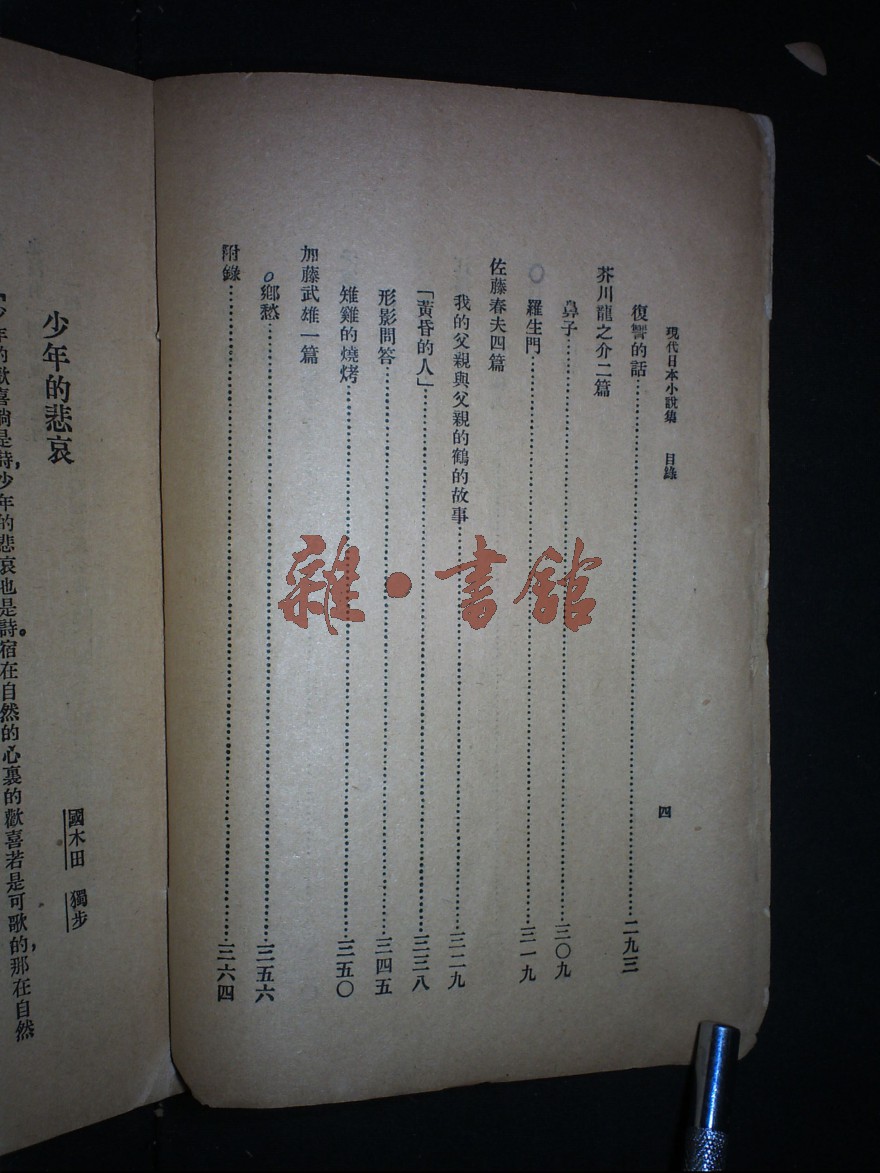 現代日本小說集 目錄 四
復讐的話……二九三
芥川龍之介二篇
鼻子……三〇九
羅生門……三一九
佐藤春夫四篇
我的父親與父親的鶴的故事……三二九
「黃昏的人」……三三八
形影問答……三四五
雉雞的燒烤……三五〇
加藤武雄一篇
鄉愁……三五六
附錄……三六四
少年的悲哀
國木田 獨步
「少年的歡喜倘是詩,少年的悲哀也是詩。宿在自然的心裏的歡喜若是可歌的,那在自然
雜·書館